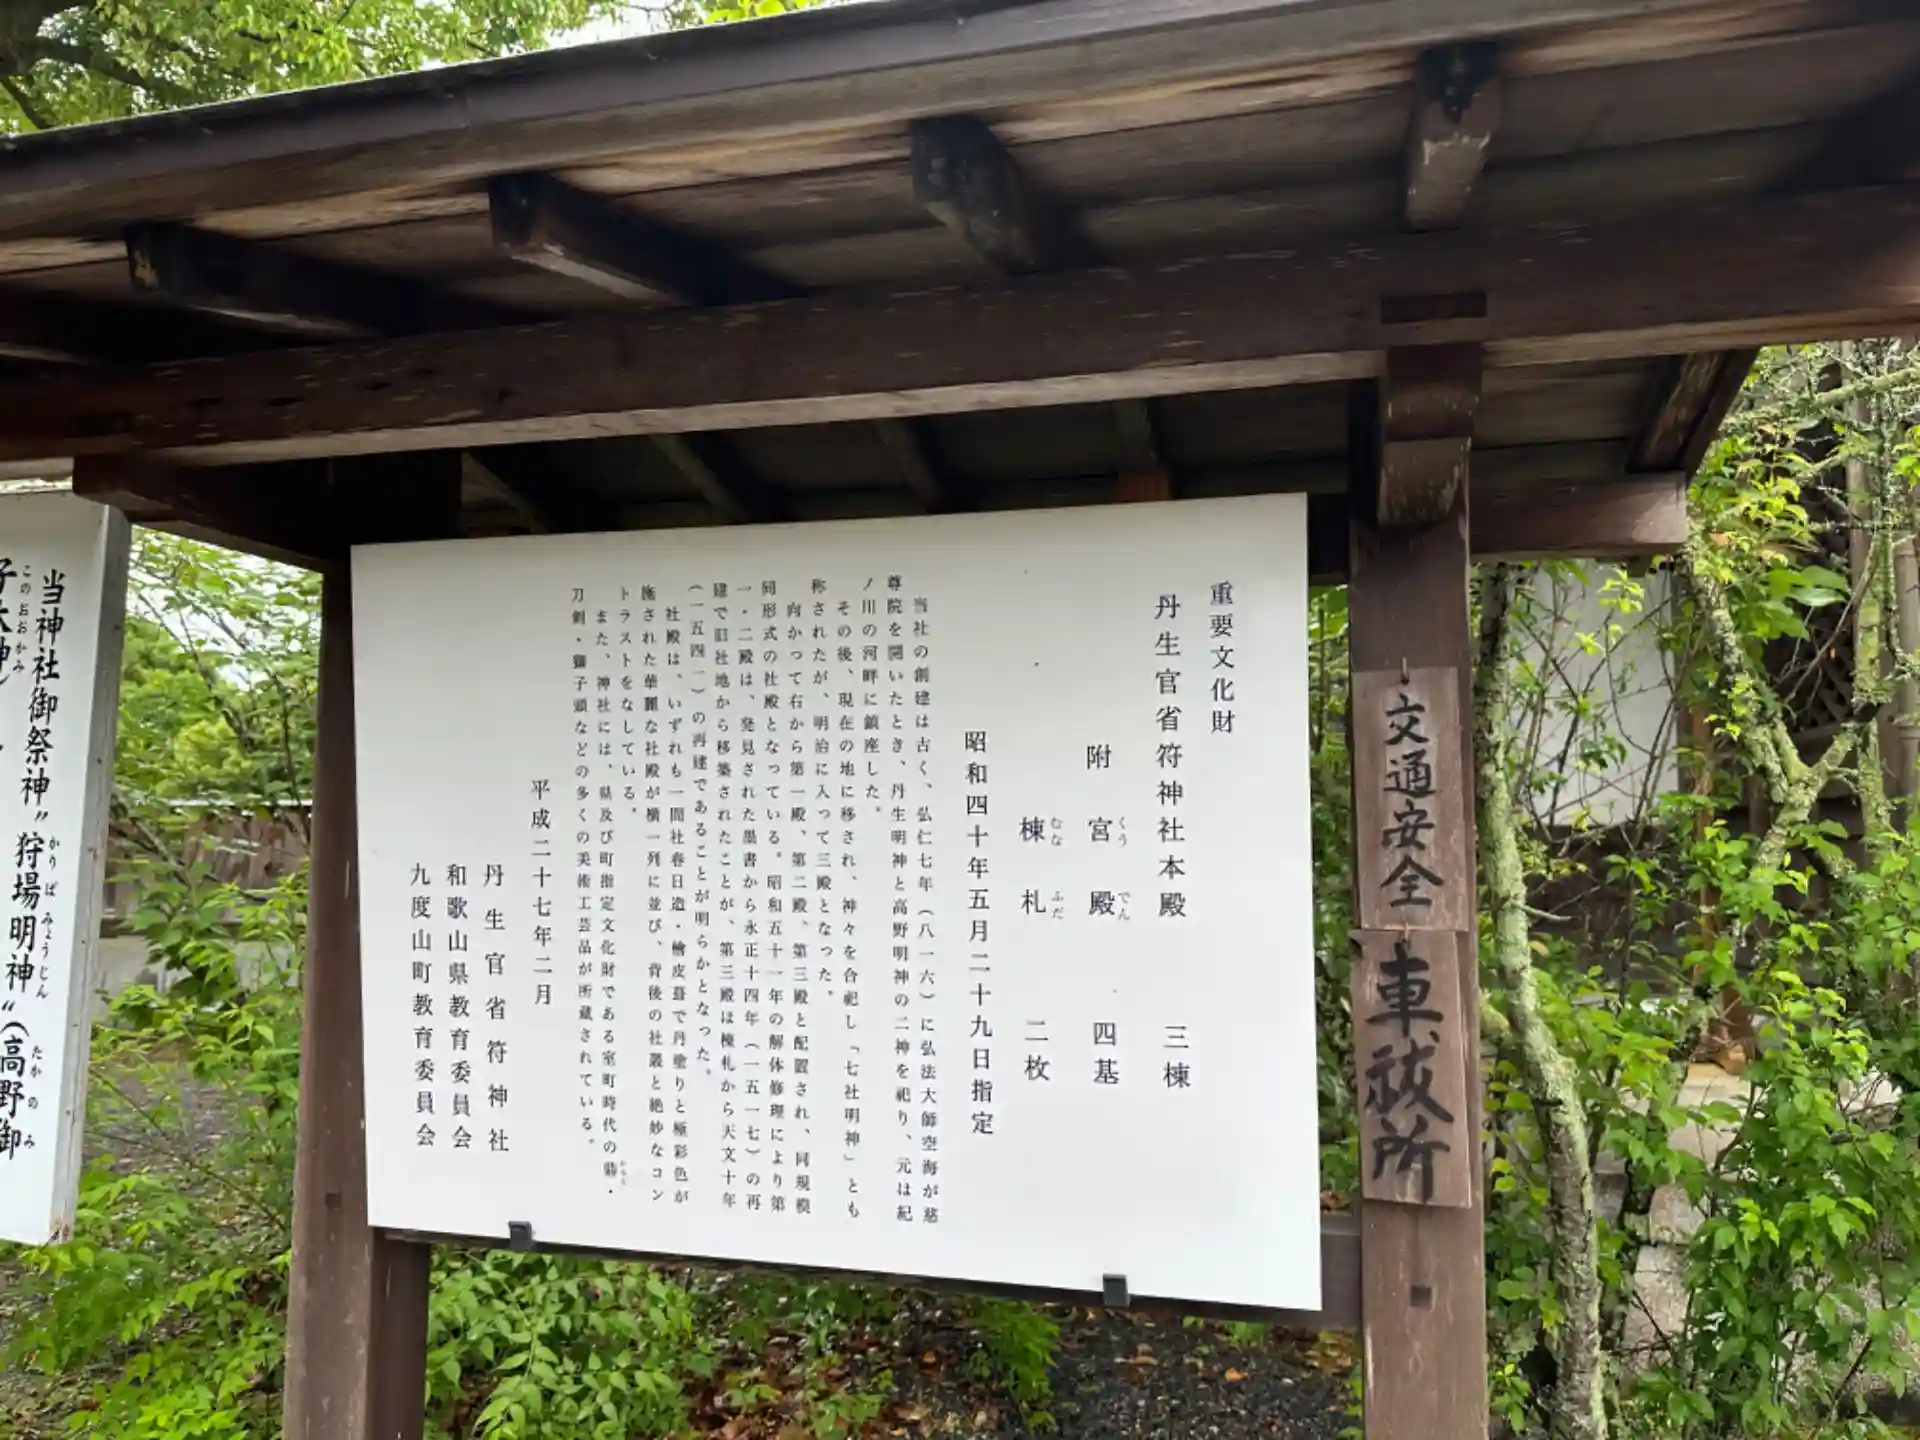 重要文化財
丹生官省符神社本殿 三棟
附 宮殿 四基
くうでん
棟札 二枚
むなふだ
昭和四十年五月二十九日指定
当社の創建は古く、弘仁七年（八一六）に弘法大師空海が慈
尊院を開いたとき、丹生明神と高野明神の二神を祀り、元は紀
ノ川の河畔に鎮座した。
その後、現在の地に移され、神々を合祀し「七社明神」とも
称されたが、明治に入って三殿となった。
向かって右から第一殿、第二殿、第三殿と配置され、同規模
同形式の社殿となっている。昭和五十一年の解体修理により第
一・二殿は、発見された墨書から永正十四年（一五一七）の再
建で旧社地から移築されたことが、第三殿は棟札から天文十年
（一五四一）の再建であることが明らかとなった。
社殿は、いずれも一間社春日造・檜皮葺で丹塗りと極彩色が
施された華麗な社殿が横一列に並び、背後の社叢と絶妙なコン
トラストをなしている。
また、神社には、県及び町指定文化財である室町時代の・
刀剣・獅子頭などの多くの美術工芸品が所蔵されている。
平成二十七年二月
丹生官省符神社
和歌山県教育委員会
九度山町教育委員会
交通安全
車祓所
当神社御祭神〝狩場明神〟（高野御
かりばみょうじん
たかのみ
子大神）
このおおかみ